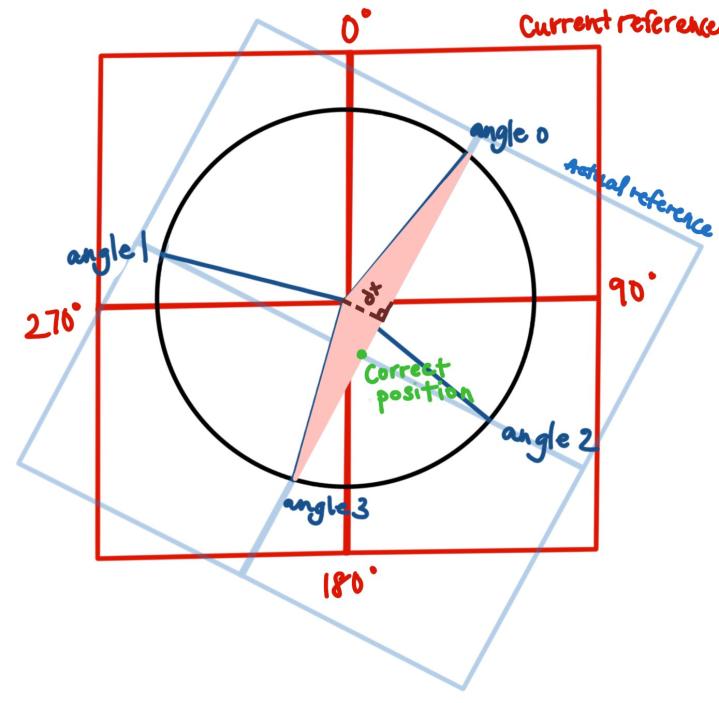 0°
Current reference
angle 0
Actual reference
angle 1
dx
90°
270°
Correct
position
angle 2
angle 3
180°